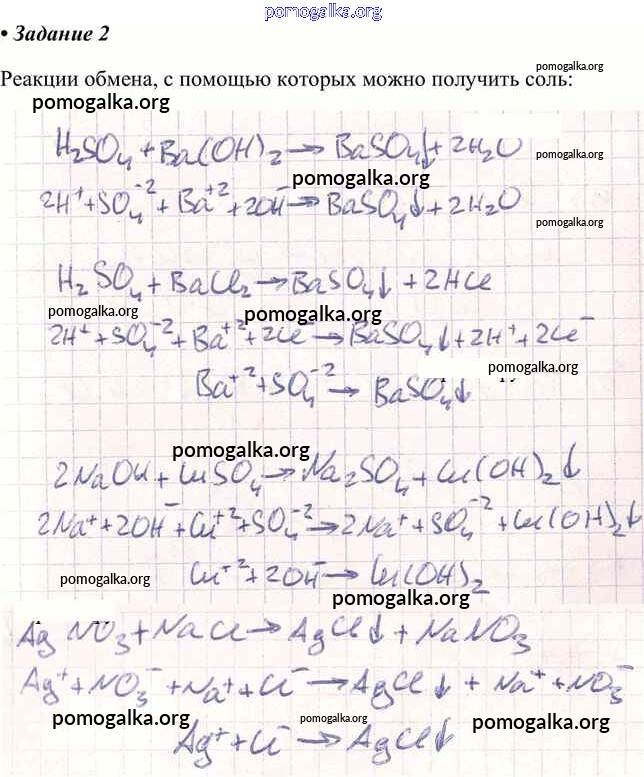 pomogalka.org
• Задание 2
pomogalka.org
Реакции обмена, с помощью которых можно получить соль:
pomogalka.org
H₂SO₄ + Ba(OH)₂ → BaSO₄↓ + 2H₂O
pomogalka.org
pomogalka.org
2H⁺ + SO₄⁻² + Ba⁺² + 2OH⁻ → BaSO₄↓ + 2H₂O
pomogalka.org
H₂SO₄ + BaCl₂ → BaSO₄↓ + 2HCl
pomogalka.org pomogalka.org
2H⁺ + SO₄⁻² + Ba⁺² + 2Cl⁻ → BaSO₄↓ + 2H⁺ + 2Cl⁻
pomogalka.org
Ba⁺² + SO₄⁻² → BaSO₄↓
pomogalka.org
2NaOH + CuSO₄ → Na₂SO₄ + Cu(OH)₂↓
2Na⁺ + 2OH⁻ + Cu⁺² + SO₄⁻² → 2Na⁺ + SO₄⁻² + Cu(OH)₂↓
pomogalka.org
Cu⁺² + 2OH⁻ → Cu(OH)₂
pomogalka.org
AgNO₃ + NaCl → AgCl↓ + NaNO₃
Ag⁺ + NO₃⁻ + Na⁺ + Cl⁻ → AgCl↓ + Na⁺ + NO₃⁻
pomogalka.org pomogalka.org pomogalka.org
Ag⁺ + Cl⁻ → AgCl↓